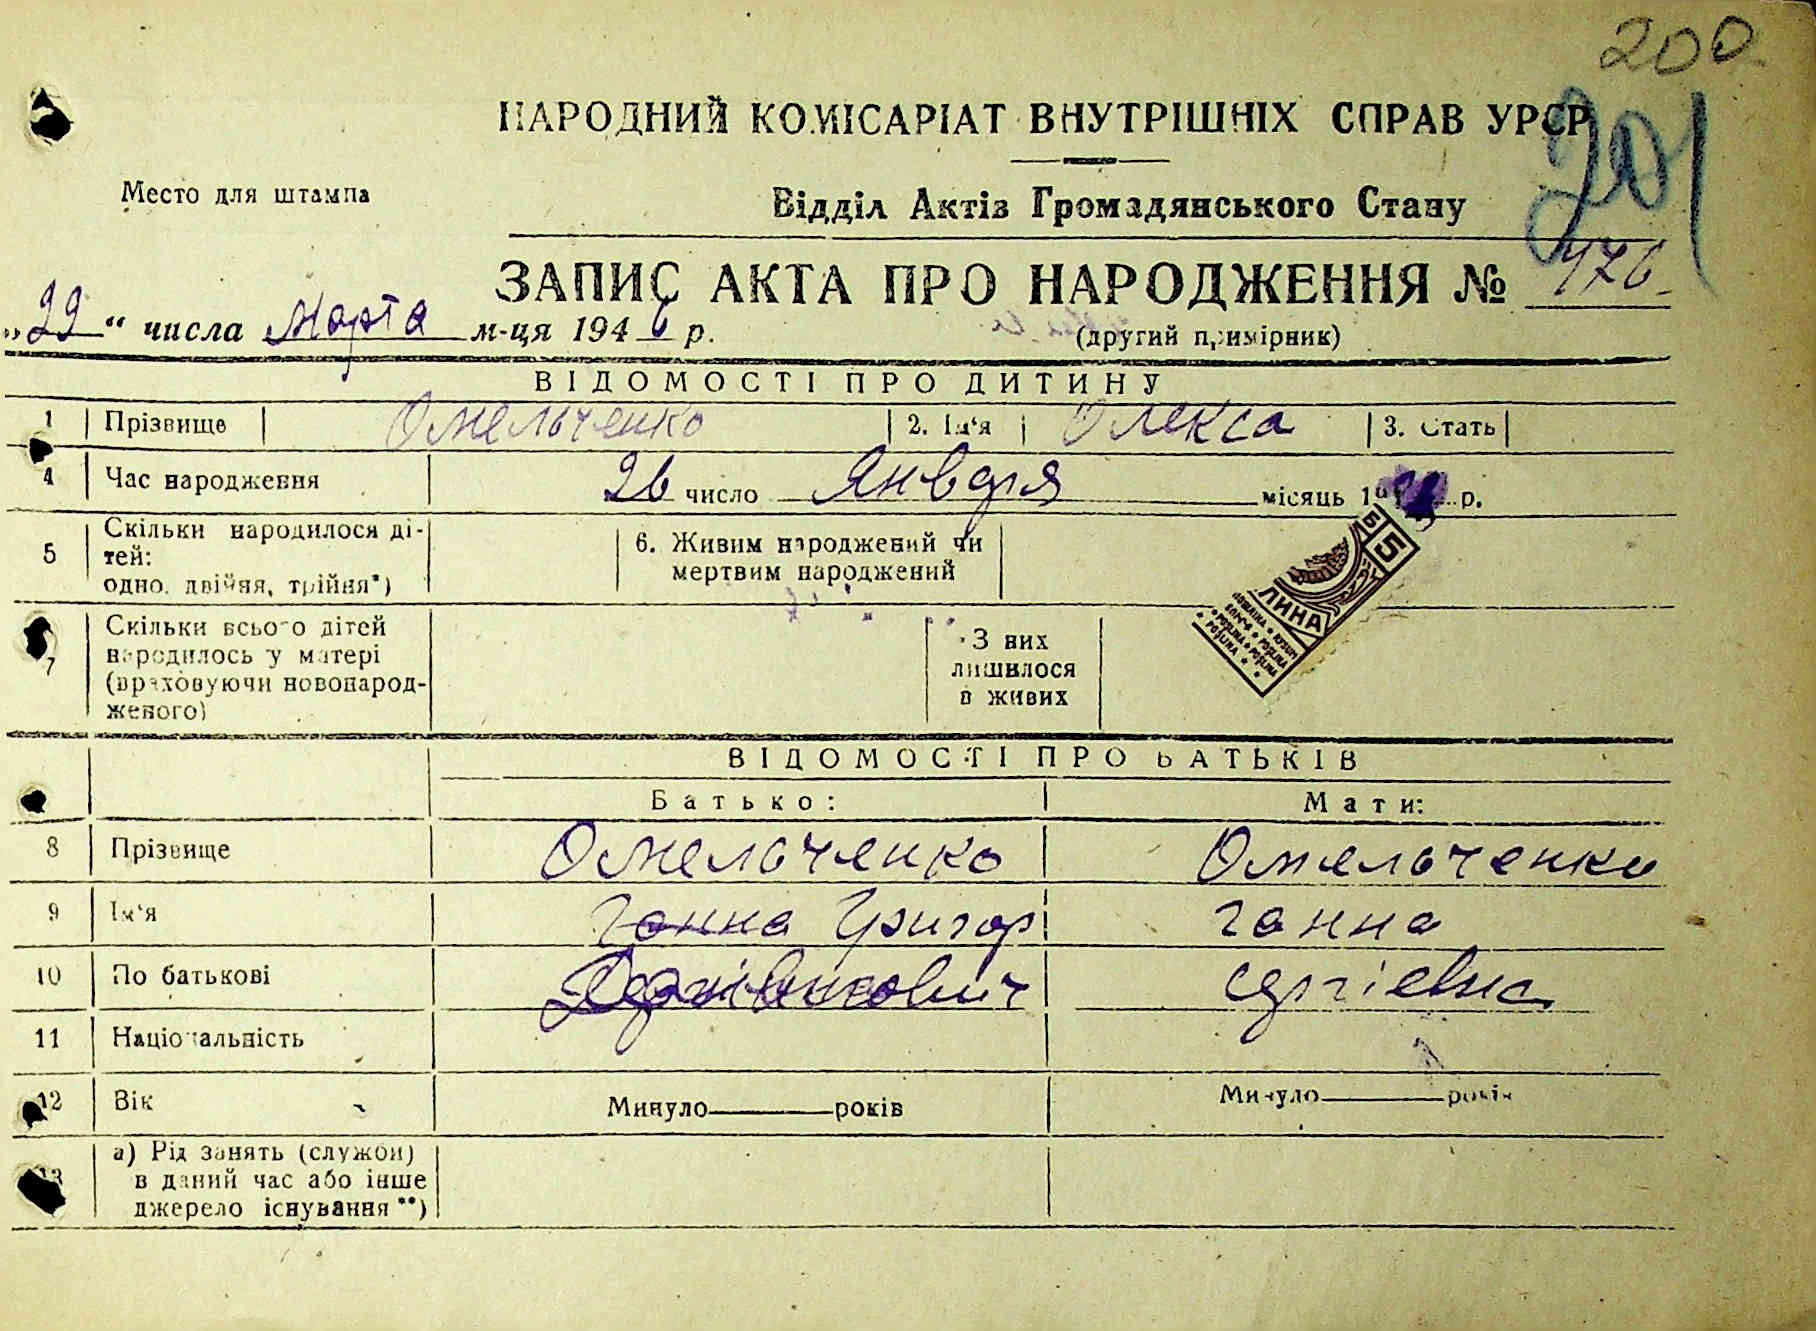 200
201
НАРОДНИЙ КОМІСАРІАТ ВНУТРІШНІХ СПРАВ УРСР
Место для штампа
Відділ Актів Громадянського Стану
ЗАПИС АКТА ПРО НАРОДЖЕННЯ № 476
„29“ числа Марта м-ця 1946 р.
(другий примірник)
ВІДОМОСТІ ПРО ДИТИНУ
1 Прізвище Омельченко 2. Ім'я Олекса 3. Стать
4 Час народження 26 число Января місяць 19 р.
5 Скільки народилося ді-
тей:
одно, двійня, трійня*)
6. Живим народжений чи
мертвим народжений
Б 5
ЛИНА
POSLINA
7 Скільки всього дітей
народилось у матері
(враховуючи новонарод-
женого)
З них
лишилося
в живих
ВІДОМОСТІ ПРО БАТЬКІВ
Батько: Мати:
8 Прізвище Омельченко Омельченко
9 Ім'я Ганна Григор Ганна
10 По батькові Сергієвна
11 Національність
12 Вік Минуло років Минуло років
13 а) Рід занять (служби)
в даний час або інше
джерело існування **)